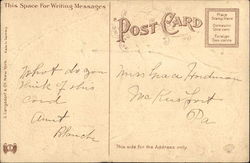 This Space For Writing Messages
POST CARD
Place
Stamp Here
Domestic
One cent
Foreign
Two cents
What do you
think of this
Card
Aunt
Blanche
Miss Grace
McKeesport
Pa
This side for the Address only.